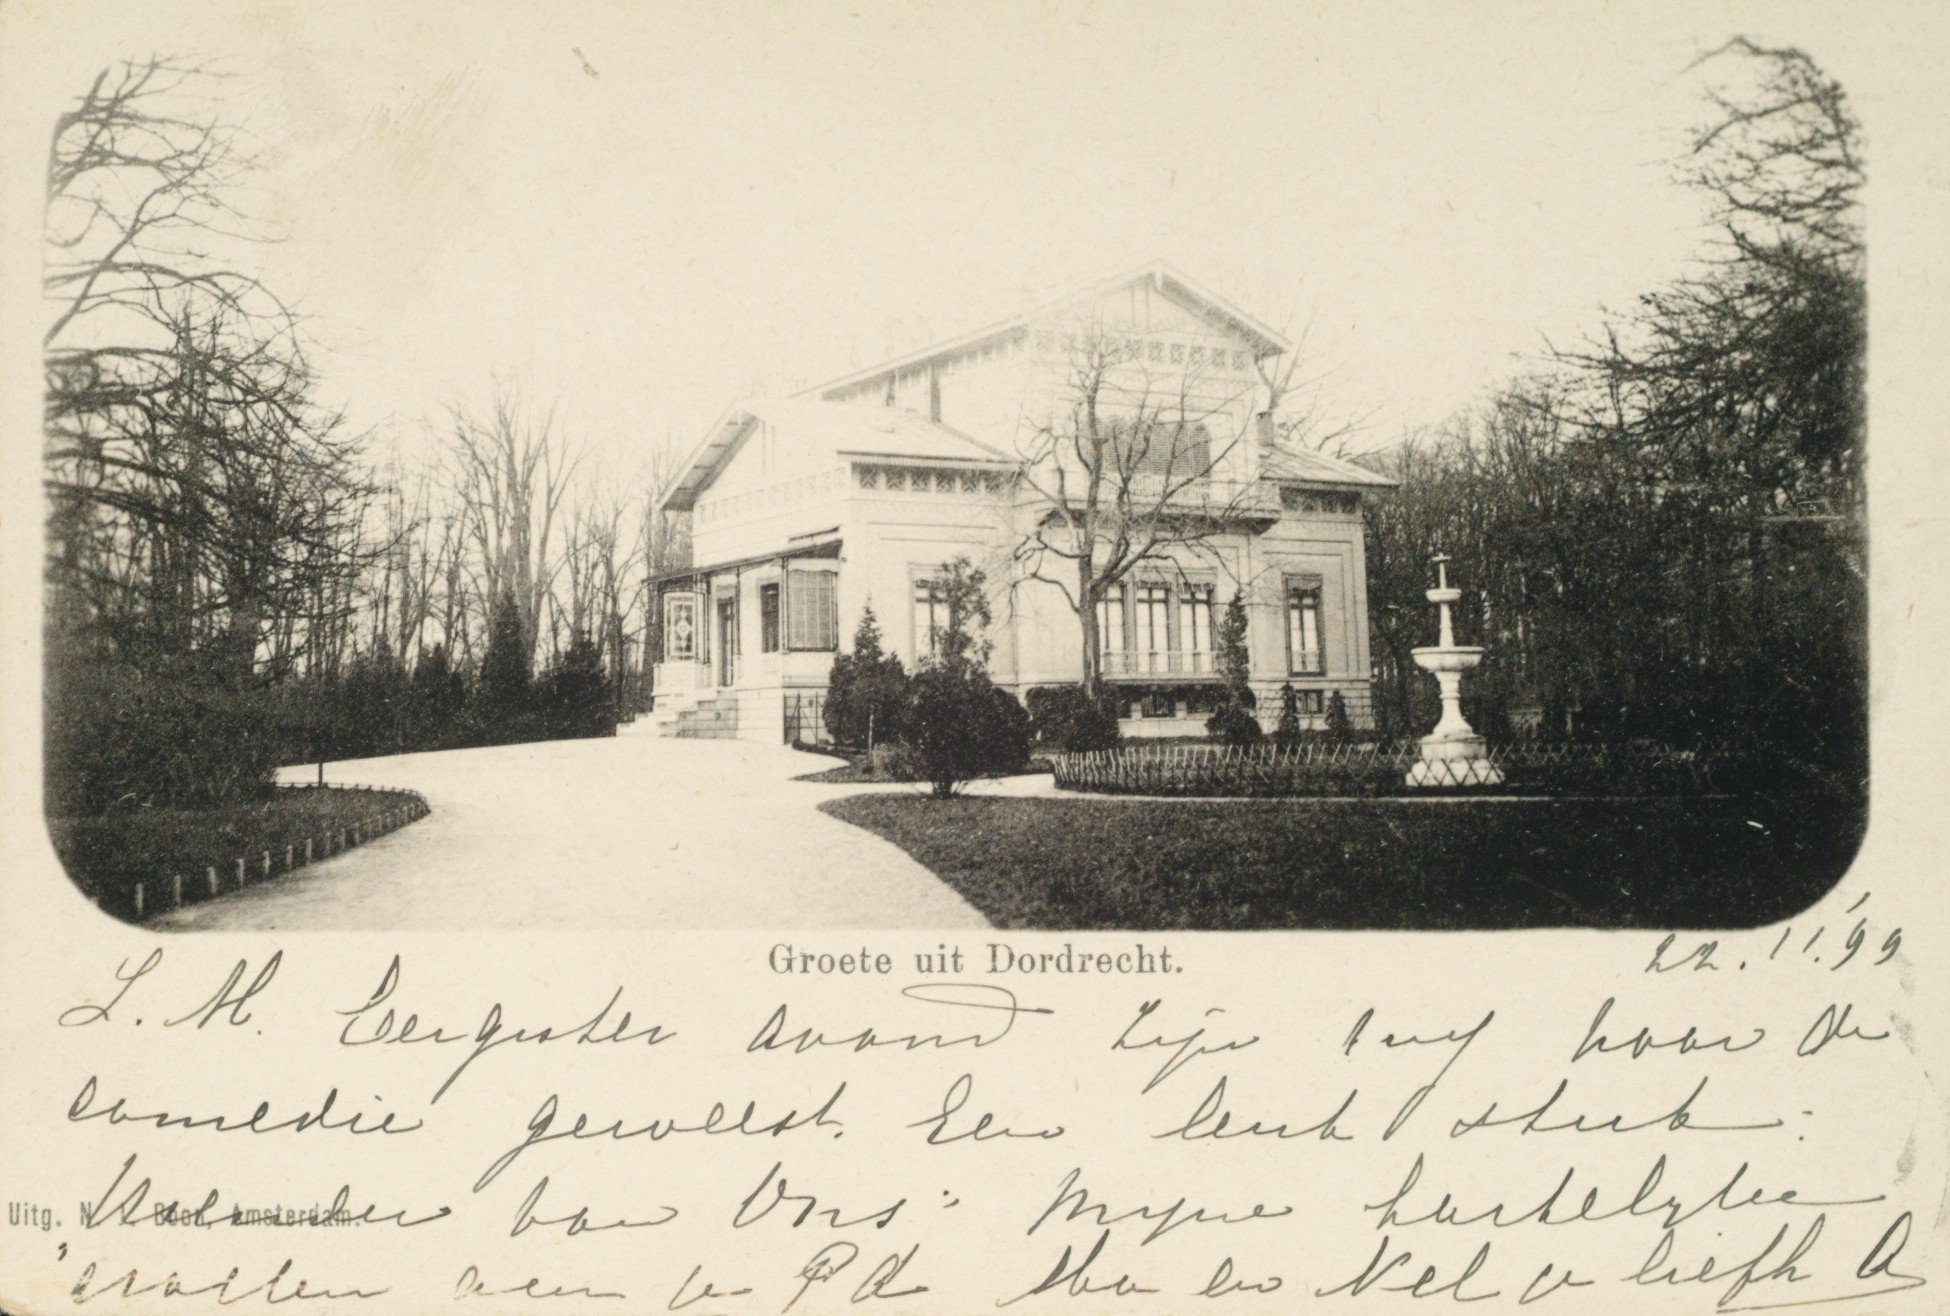 Groete uit Dordrecht.
22.11.'99
L. M. Eergister avond zijn wij naar de
comedie geweest. Een leuk stuk:
Uitg. N. J. Boon, Amsterdam.
van Ons". Mijne hartelijke
groeten aan je Pa Ma en Nel je liefh